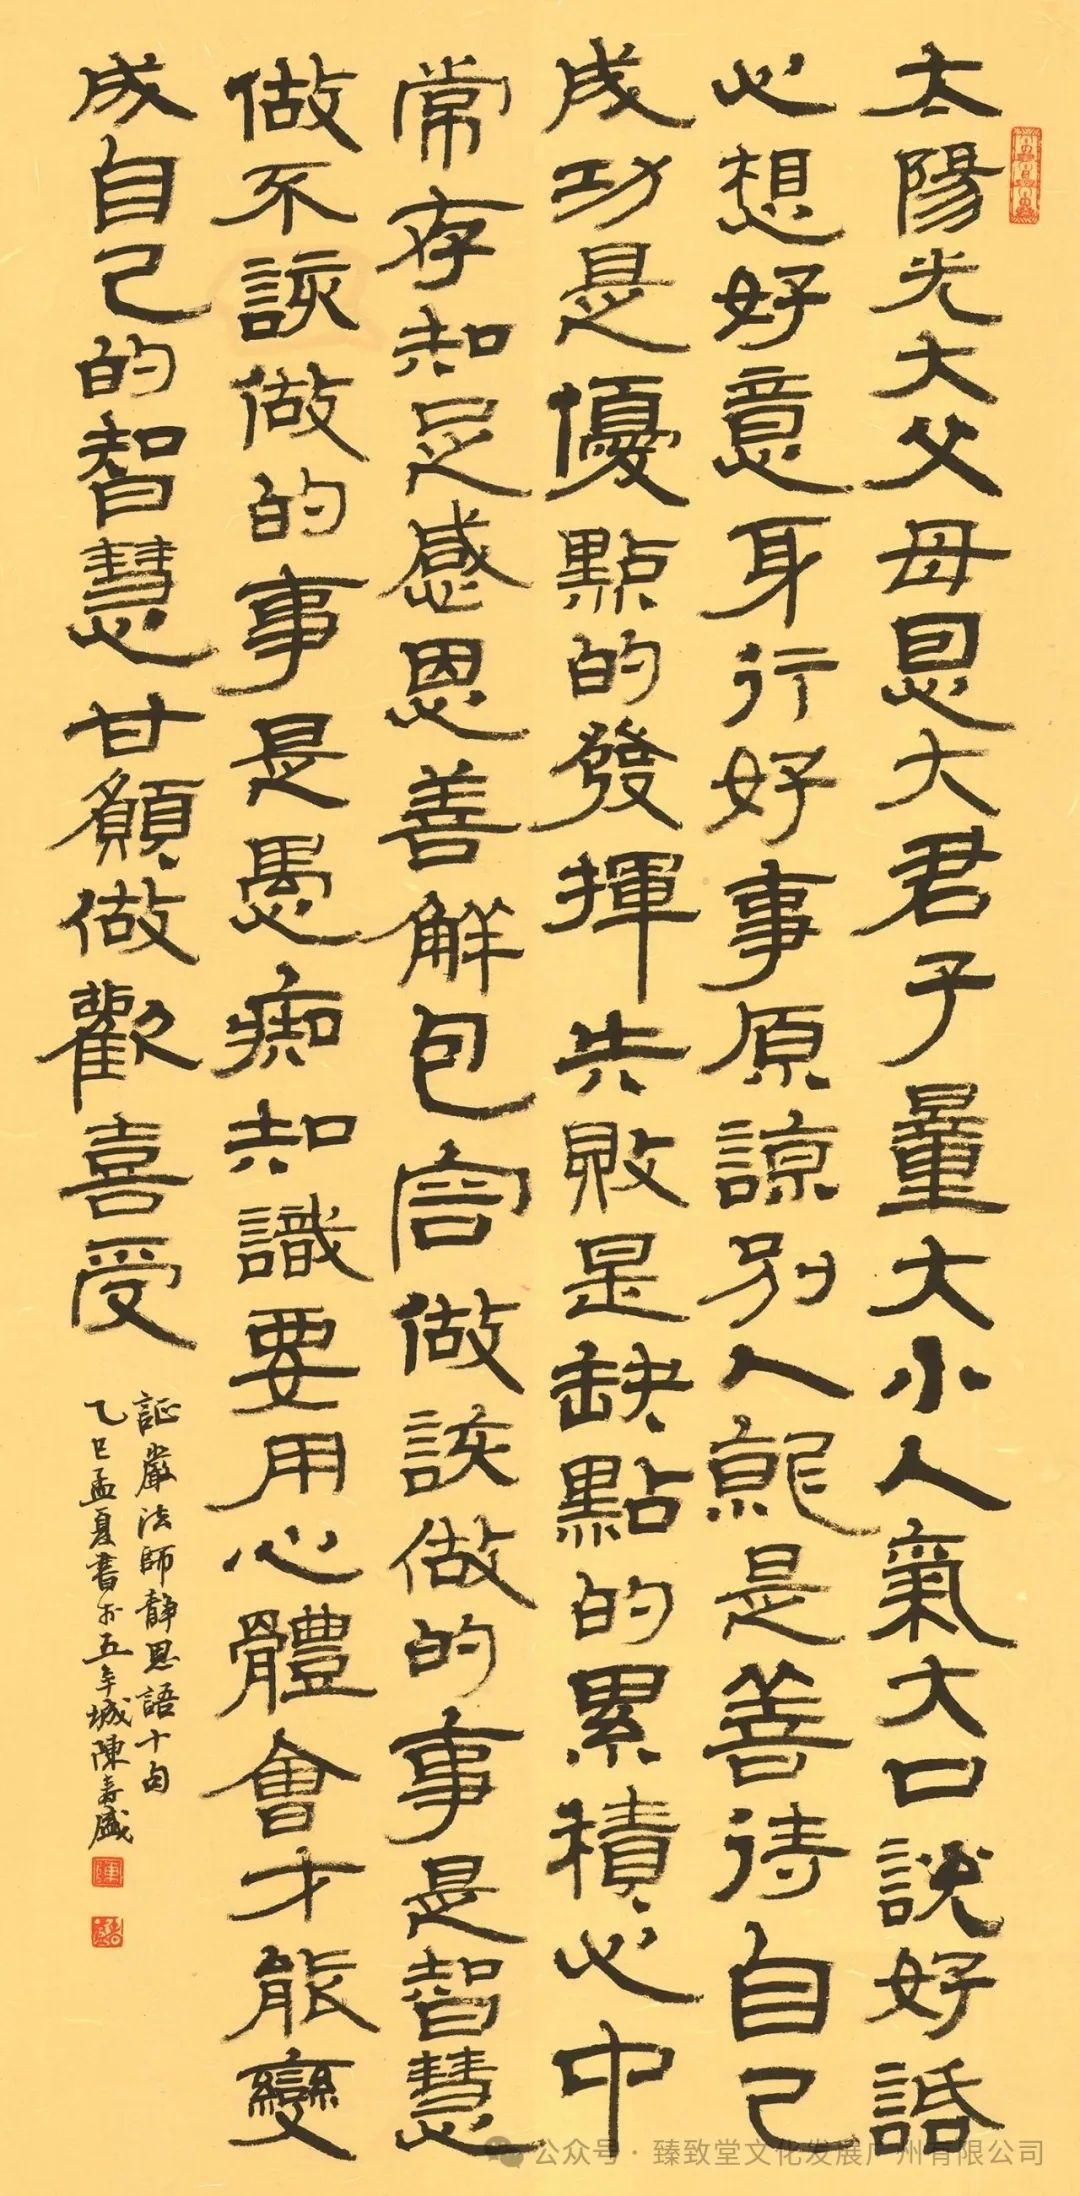 太陽光大父母恩大君子量大小人氣大口說好話
心想好意身行好事原諒別人就是善待自己
成功是優點的發揮失敗是缺點的累積心中
常存知足感恩善解包容做該做的事是智慧
做不該做的事是愚痴知識要用心體會才能變
成自己的智慧甘願做歡喜受
証嚴法師靜思語十句
乙巳孟夏書於五羊城陳壽盛
公众号·臻致堂文化发展广州有限公司